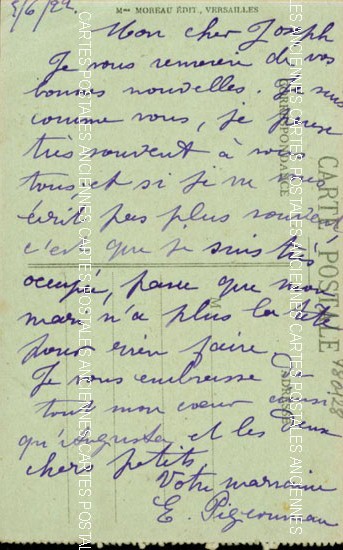 5/6/22.
Mme MOREAU ÉDIT., VERSAILLES
Mon cher Joseph
Je vous remercie de vos
bonnes nouvelles. Je suis
comme vous, je pense
très souvent à vous
tous et si je ne vous
écrit pas plus souvent
c'est que je suis très
occupé, parce que mon
mari n'a plus la tête
pour rien faire.
Je vous embrasse de
tout mon coeur ainsi
qu'Augusta et les deux
chers petits
Votre marraine
E.
CARTE POSTALE
CORRESPONDANCE
ADRESSE
CARTES POSTALES ANCIENNES
CARTES POSTALES ANCIENNES
CARTES POSTALES ANCIENNES